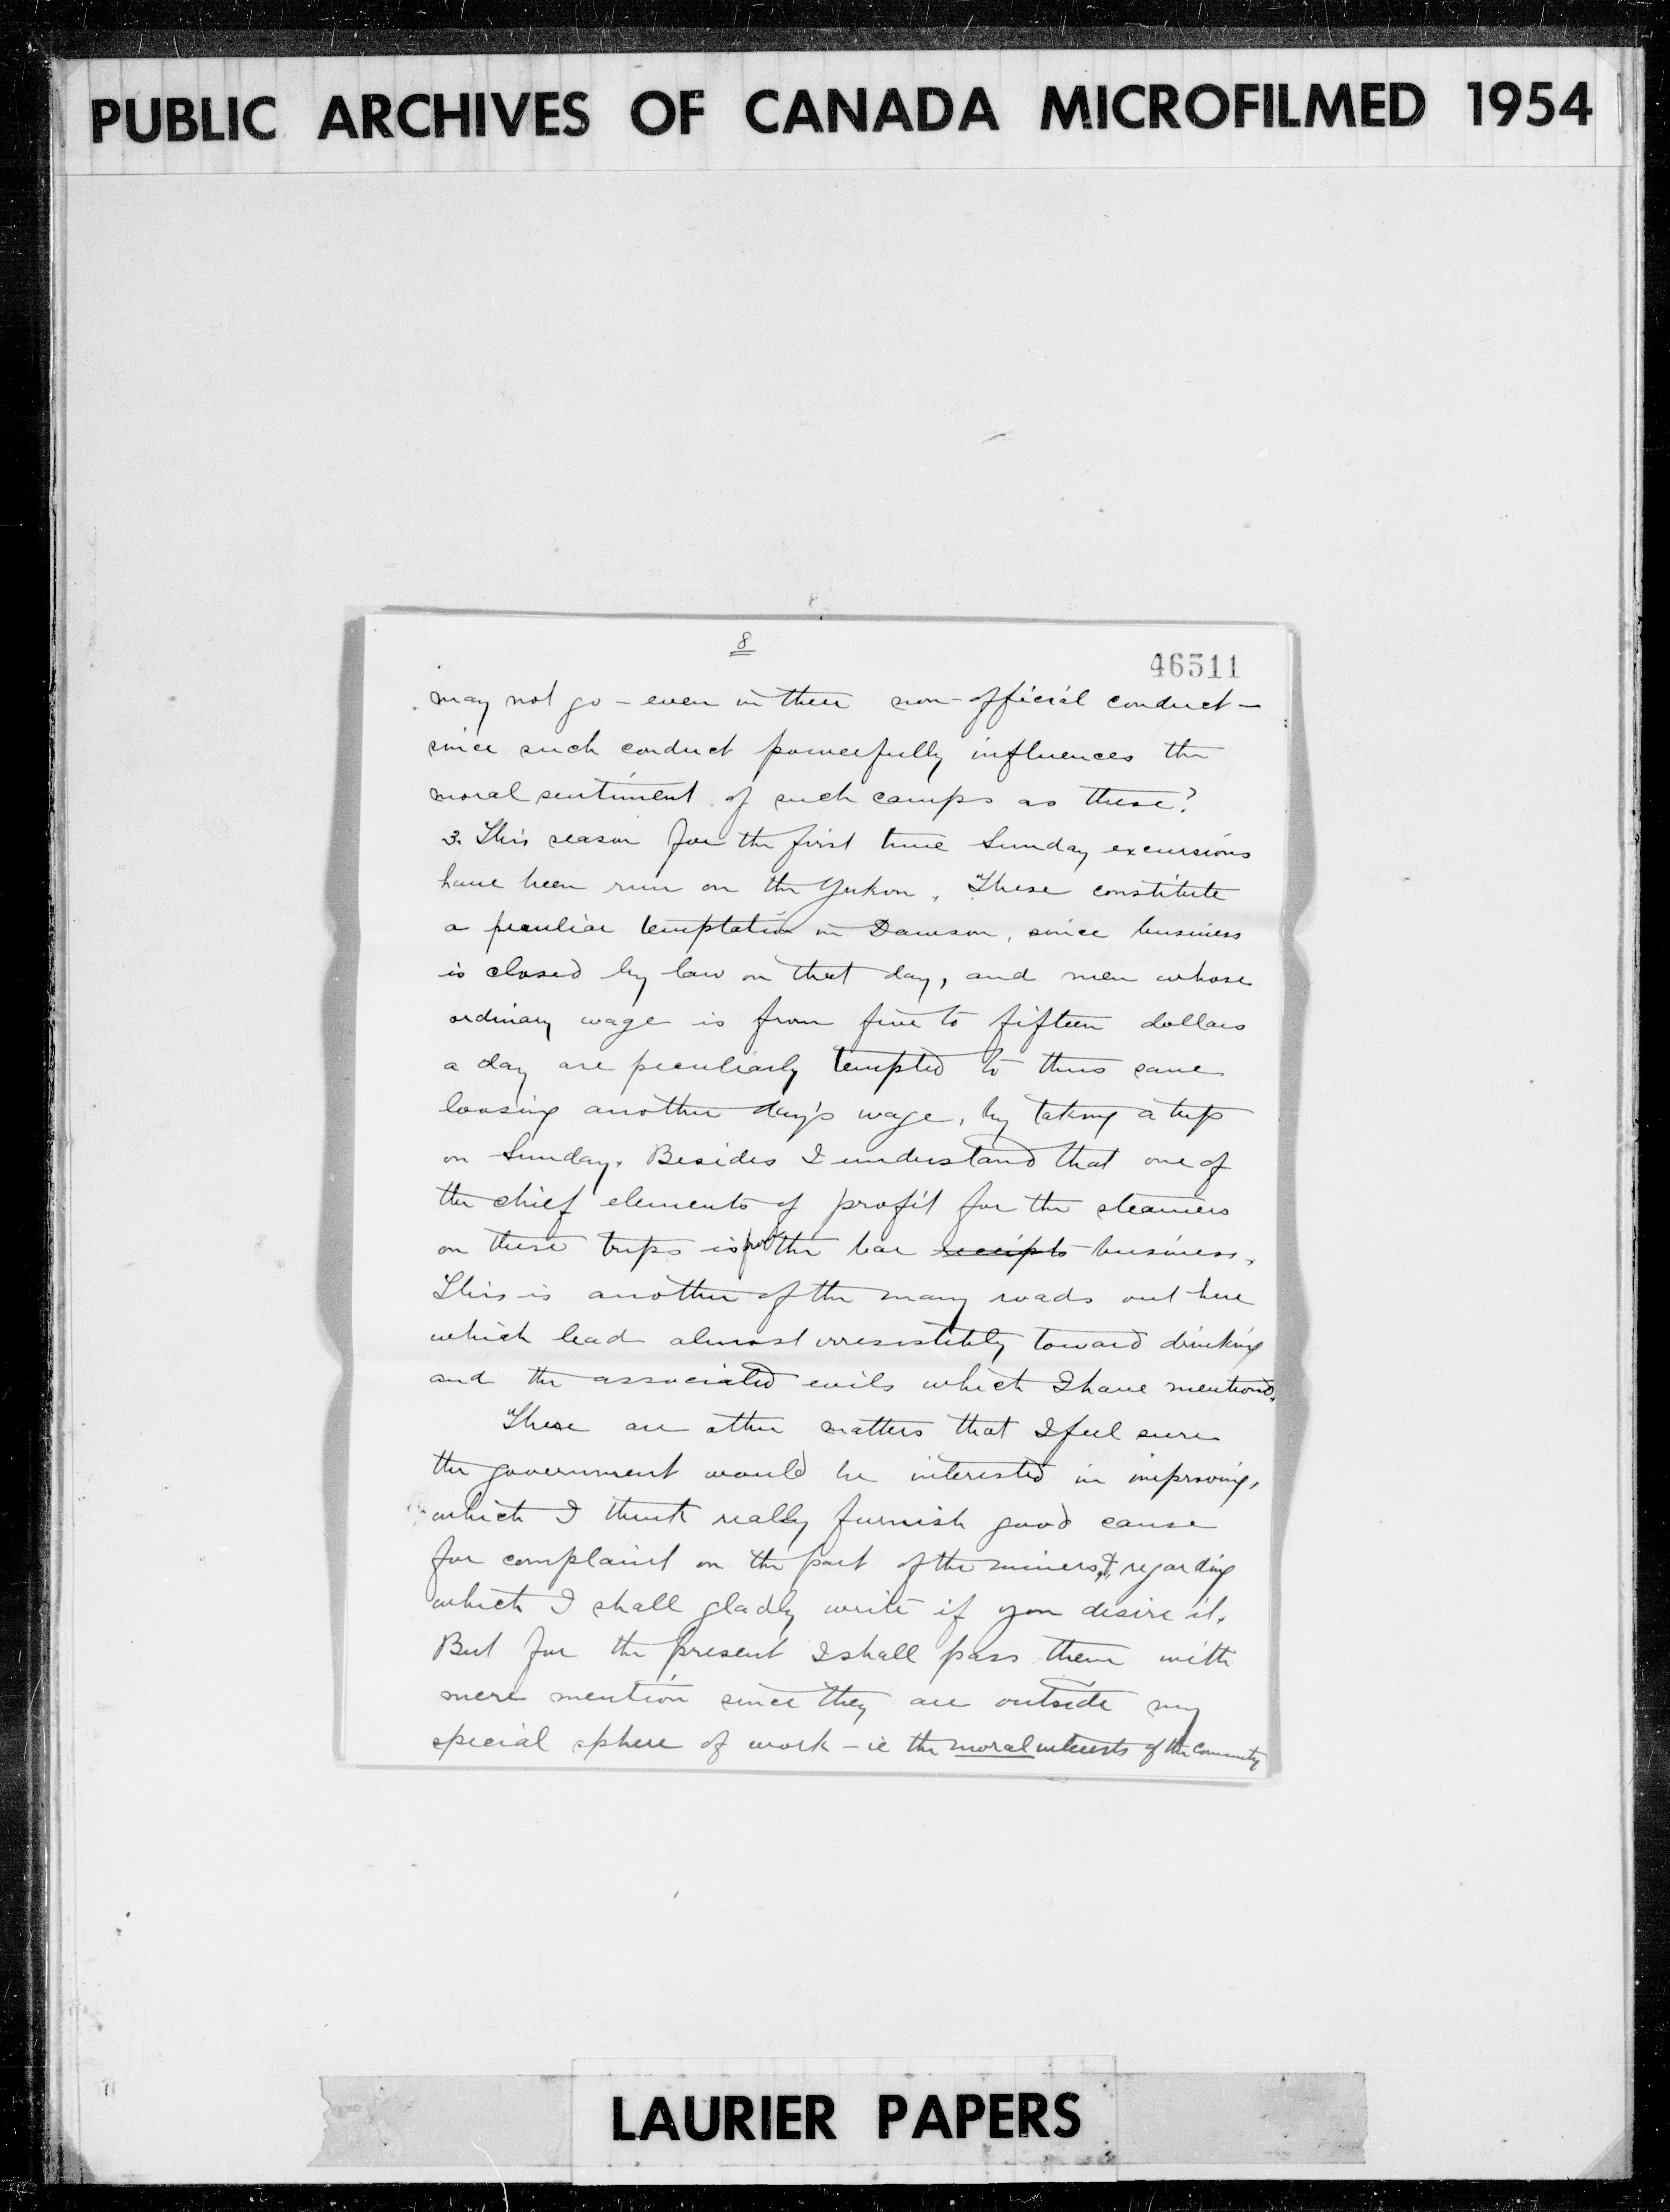 PUBLIC ARCHIVES OF CANADA MICROFILMED 1954
8
46511
may not go – even in their non-official conduct –
since such conduct powerfully influences the
moral sentiment of such camps as these?
3. This season for the first time Sunday excursions
have been run on the Yukon. These constitute
a peculiar temptation in Dawson, since business
is closed by law on that day, and men whose
ordinary wage is from five to fifteen dollars
a day are peculiarly tempted to thus save
loosing another day's wage, by taking a trip
on Sunday. Besides I understand that one of
the chief elements of profit for the steamers
on these trips is the bar receipts business.
This is another of the many roads out here
which lead almost irresistibly toward drinking
and the associated evils which I have mentioned.
There are other matters that I feel sure
the government would be interested in improving,
which I think really furnish good cause
for complaint on the part of the miners, & regarding
which I shall gladly write if you desire it.
But for the present I shall pass them with
mere mention since they are outside my
special sphere of work – ie the moral interests of the community
LAURIER PAPERS